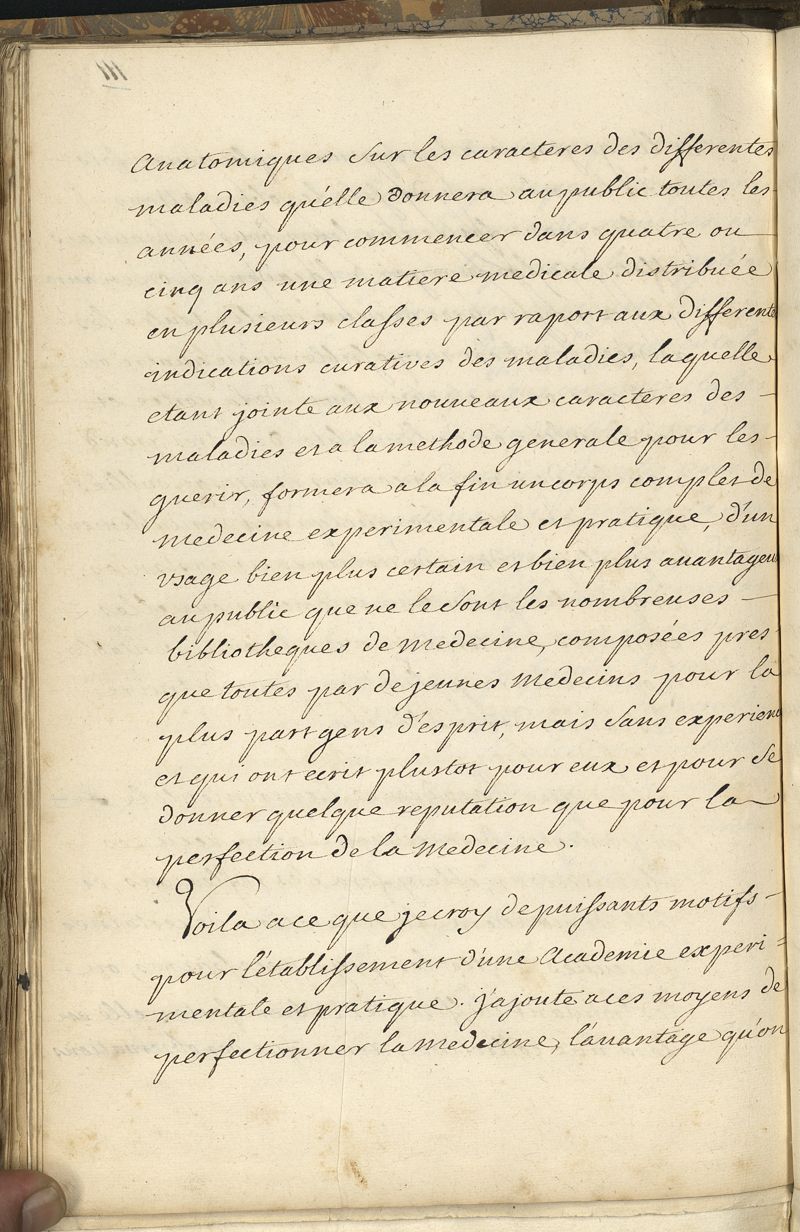 Anatomiques sur les caracteres des differentes
maladies qu'elle donnera au public toutes les
années, pour commencer dans quatre ou
cinq ans une matiere medicale distribuée
en plusieurs classes par raport aux differente
indications curatives des maladies, laquelle
etant jointe aux nouveaux caracteres des -
maladies et a la methode generale pour les -
guerir, formera a la fin un corps complet de
medecine experimentale et pratique, d'un
usage bien plus certain et bien plus auantageu
au public que ne le sont les nombreuses -
bibliotheques de medecine, composées pres
que toutes par de jeunes medecins pour la
plus part gens d'esprit, mais sans experienc
et qui ont ecrit plustot pour eux et pour se
donner quelque reputation que pour la
perfection de la medecine.
Voila a ce que je croy de puissants motifs -
pour l'établissement d'une Academie experi=
mentale et pratique. j'ajoute a ces moyens de
perfectionner la medecine, l'auantage qu'on